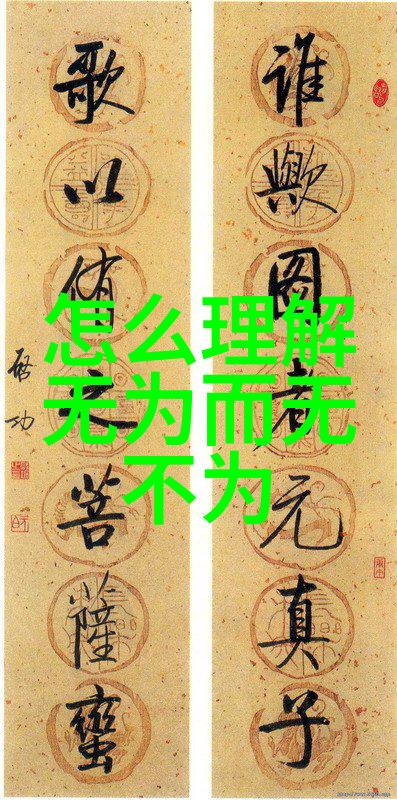 怎么理解
无为而无
不为
谁歟图者元真子
歌以侑之菩薩蠻
啟功